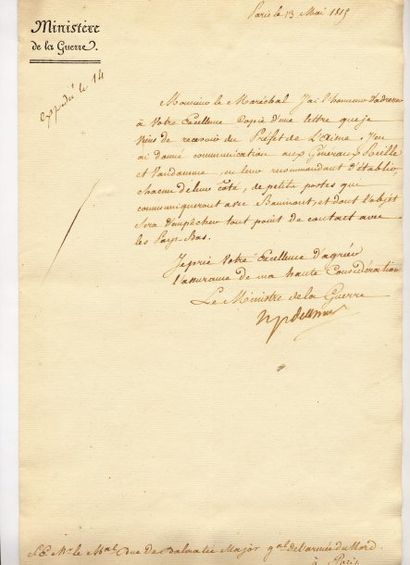 Ministère
de la Guerre.
Paris le 13 Mai 1815
expédié le 14
Monsieur le Maréchal J'ai l'honneur d'adresser
à Votre Excellence copie d'une lettre que je
viens de recevoir du Préfet de L'aisne. J'en
ai donné communication aux Généraux
et Vandamme, en leur recommandant d'établir,
chacun de leur côté, de petits postes qui
communiqueront avec et dont l'objet
sera d'empêcher tout point de contact avec
les Pays-Bas.
Je prie Votre Excellence d'agréer
l'assurance de ma haute Considération
Le Ministre de la Guerre
S.E. Mr. le Mal. Duc de Dalmatie Major gnal. de l'armée du Nord
à Paris